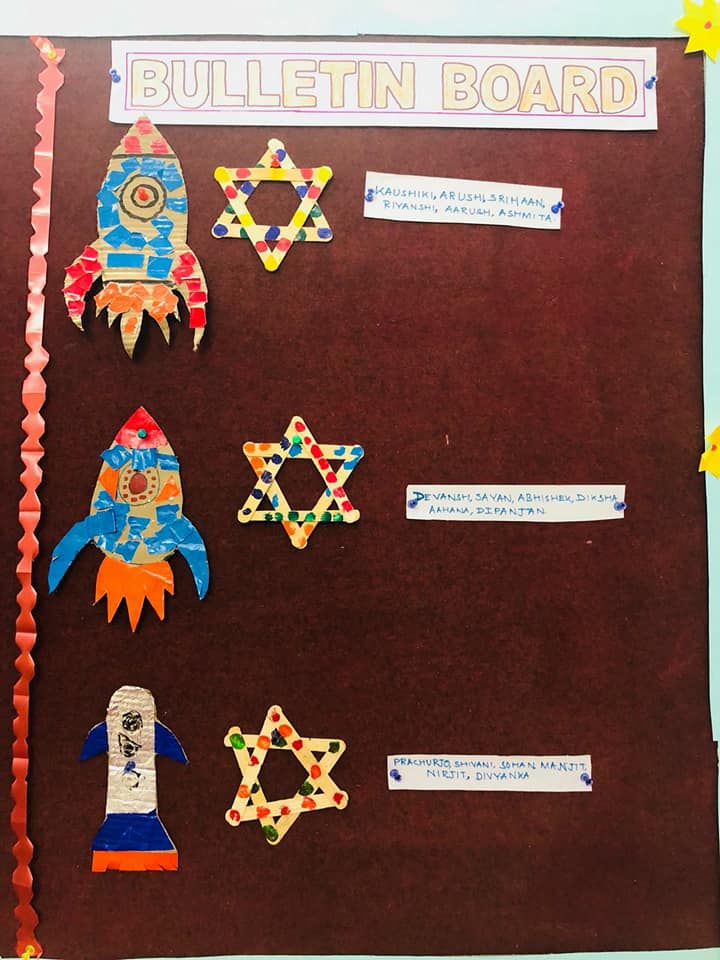 BULLETIN BOARD
KAUSHIKI, ARUSHI, SRIHAAN,
RIVANSHI, AARUSH, ASHMITA
DEVANSH, SAYAN, ABHISHEK, DIKSHA
AAHANA, DIPANJAN
PRACHURJO, SHIVANI, SOHAN MANJIT,
NIRJIT, DIVYANKA